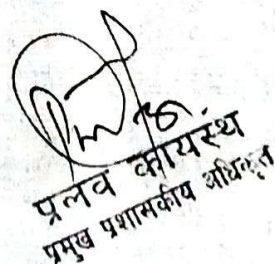 प्रलव कायस्थ
प्रमुख प्रशासकीय अधिकृत